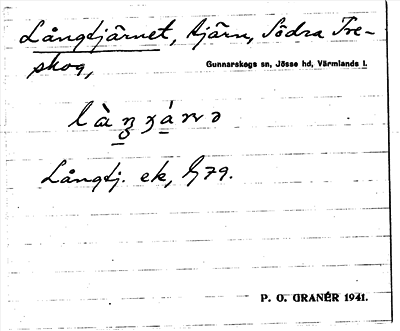 Långtjärnet, tjärn, Södra Tre-
skog, Gunnarskogs sn, Jösse hd, Värmlands l.
Långtj. ek, G79.
P. O. GRANÉR 1941.